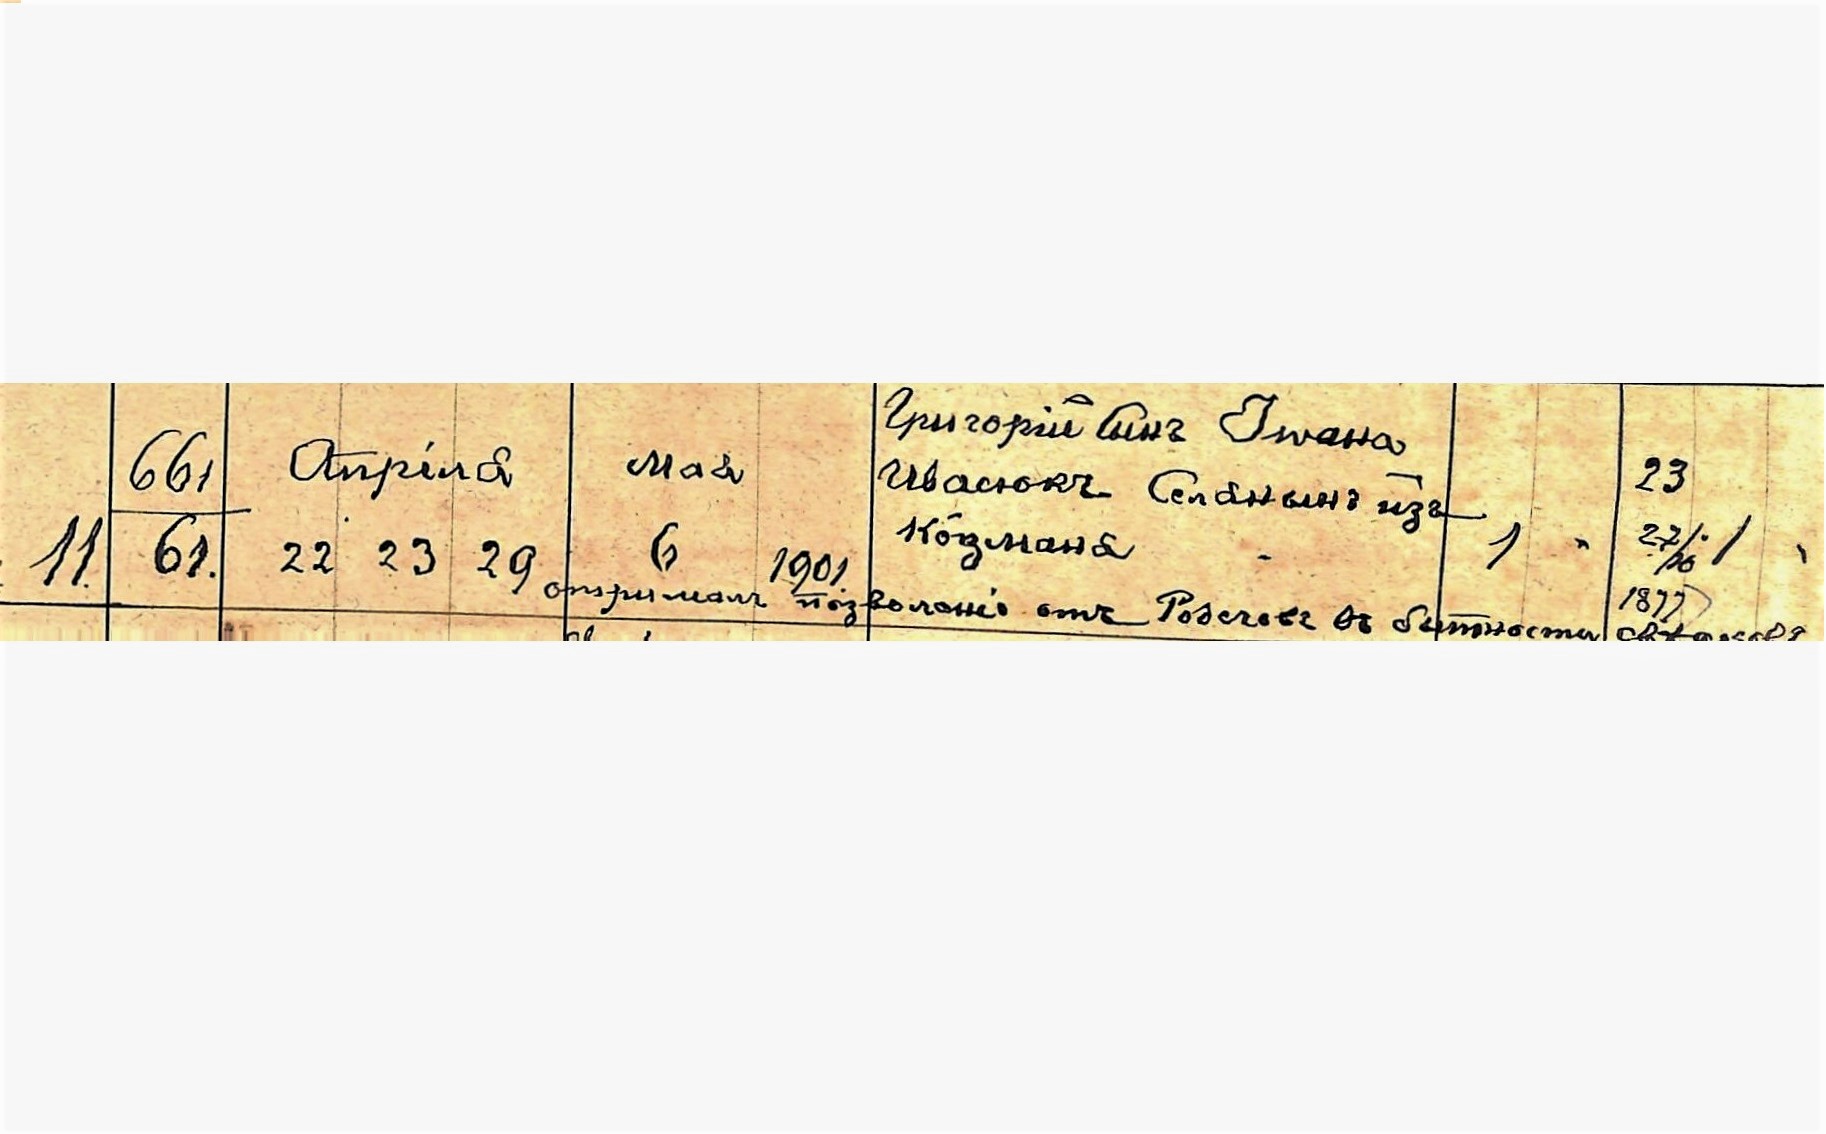 661
Апріля
Мая
Григорій Сынъ Іwана
Ивасюкъ Селянынъ изъ
Коцманя
23
11. 61. 22 23 29 6 1901 1 " 27/10 1
1877
отрималъ позволеніє отъ Родичовъ въ бытности свѣдковъ